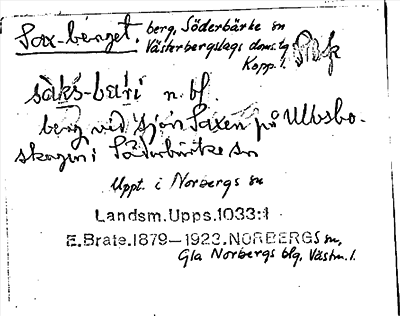 Sax-berget, berg, Söderbärke sn
Västerbergslags doms.tg
Kopp. l.
säks-bæri n. bf.
berg vid sjön Saxen på Ulvsbo-
skogen i Söderbärke sn
Uppt. i Norbergs sn
Landsm.Upps.1033:1
E.Brate.1879–1923.NORBERGS sn,
Gla Norbergs blg, Västm. l.